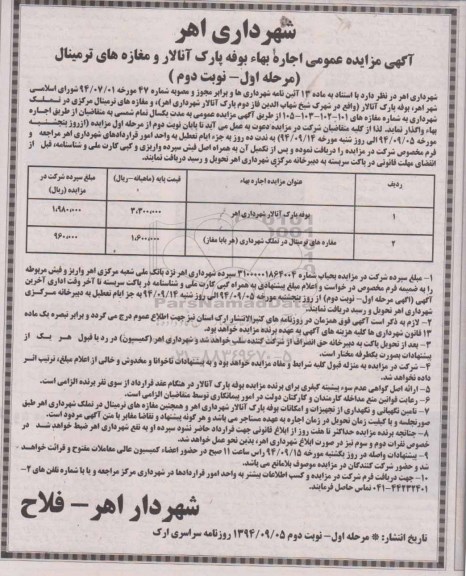 شهرداری اهر
آگهی مزایده عمومی اجاره بهاء بوفه پارک آنالار و مغازه های ترمینال
(مرحله اول- نوبت دوم )
شهرداری اهر در نظر دارد با استناد به ماده ۱۳ آئین نامه شهرداری ها و برابر مجوز و مصوبه شماره ۴۷ مورخه ۹۴/۰۷/۰۱ شورای اسلامی
شهر اهر، بوفه پارک آنالار (واقع در شهرک شیخ شهاب الدین فاز دوم پارک آنالار شهرداری اهر)، و مغازه های ترمینال مرکزی در تملک
شهرداری به شماره مغازه های ۱۰۱-۱۰۲-۱۰۳-۱۰۵ از طریق آگهی مزایده عمومی به مدت یکسال تمام شمسی به متقاضیان از طریق اجاره
بهاء واگذار نماید. لذا از کلیه متقاضیان شرکت در مزایده دعوت به عمل می آید تا پایان نوبت دوم از مرحله اول مزایده (ازروز پنجشنبه
مورخه ۹۴/۰۹/۰۵ الی روز شنبه مورخه ۹۴/۰۹/۱۴) به مدت ده روز به جزء ایام تعطیل به واحد امور قراردادهای شهرداری اهر مراجعه و
فرم مخصوص شرکت در مزایده را دریافت نموده و پس از تکمیل آن به همراه اصل فیش سپرده واریزی و کپی کارت ملی و شناسنامه، قبل از
انقضای مهلت قانونی در پاکت سربسته به دبیرخانه مرکزی شهرداری اهر تحویل و رسید دریافت نمایند.
ردیف عنوان مزایده اجاره بهاء قیمت پایه (ماهیانه-ریال) مبلغ سپرده شرکت در مزایده (ریال)
۱ بوفه پارک آنالار شهرداری اهر ۳،۳۰۰،۰۰۰ ۱،۹۸۰،۰۰۰
۲ مغازه های ترمینال در تملک شهرداری (هر باب مغاز) ۱،۶۰۰،۰۰۰ ۹۶۰،۰۰۰
۱- مبلغ سپرده شرکت در مزایده بحساب شماره ۳۱۰۰۰۰۰۱۸۶۴۰۰۴ سپرده شهرداری اهر نزد بانک ملی شعبه مرکزی اهر واریز و فیش مربوطه
را به ضمیمه فرم مخصوص در خواست و اعلام مبلغ پیشنهادی به همراه کپی کارت ملی و شناسنامه در پاکت سربسته تا آخر وقت اداری آخرین
آگهی (آگهی مرحله اول- نوبت دوم) از روز پنجشنبه مورخه ۹۴/۰۹/۰۵ الی روز شنبه ۹۴/۰۹/۱۴ به جز ایام تعطیل به دبیرخانه مرکزی
شهرداری اهر تحویل و رسید دریافت نمایند.
۲- لازم به ذکر است آگهی فوق همزمان در روزنامه های کثیرالانتشار ارک استان نیز جهت اطلاع عموم درج می گردد و برابر تبصره یک ماده
۱۳ قانون شهرداری ها کلیه هزینه های آگهی به عهده برنده مزایده خواهد بود.
۳- بعد از تحویل پاکت به دبیرخانه حق انصراف از شرکت کننده سلب خواهد شد و شهرداری اهر (کمیسیون) در رد یا قبول هر یک از
پیشنهادات بصورت یکطرفه مختار است.
۴- شرکت در مزایده به منزله قبول کلیه شرایط و مفاد مزایده خواهد بود و به پیشنهادات ناخوانا و مخدوش و خالی از اعلام مبلغ، ترتیب اثر
داده نخواهد شد.
۵- ارائه اصل گواهی عدم سوء پیشینه کیفری برای برنده مزایده بوفه پارک آنالار در هنگام عقد قرارداد از سوی نفر برنده الزامی است.
۶- رعایت قوانین منع مداخله کارمندان و کارکنان دولت در امور پیمانکاری توسط متقاضیان الزامی است.
۷- تامین نگهبانی و نگهداری از تجهیزات و امکانات بوفه پارک آنالار شهرداری اهر و همچنین مغازه های ترمینال در تملک شهرداری اهر طبق
صورتجلسه و با کیفیت زمان تحویل در زمان اجاره به عهده مستاجر می باشد و هر گونه پیشنهاد و تقاضا مغایر با متن آگهی مردود است.
۸- چنانچه برنده مزایده حداکثر تا هفت روز از ابلاغ قانونی جهت قرارداد حاضر نشود سپرده او به نفع شهرداری اهر ضبط خواهد شد در
خصوص نفرات دوم و سوم نیز در صورت ابلاغ شهرداری اهر، بدین نحو عمل خواهد شد.
۹- پیشنهادات واصله در روز یکشنبه مورخه ۹۴/۰۹/۱۵ راس ساعت ۱۱ صبح در حضور اعضاء کمیسیون عالی معاملات مفتوح و قرائت خواهد
شد و حضور شرکت کنندگان در مزایده موصوف بلامانع می باشد.
۱۰- جهت دریافت فرم شرکت در مزایده و کسب اطلاعات بیشتر به واحد امور قراردادها در شهرداری مرکز مراجعه و یا با شماره تلفن های ۲-
۰۴۱-۴۴۲۳۲۴۰۱ تماس حاصل فرمایند.
شهردار اهر - فلاح
تاریخ انتشار: * مرحله اول- نوبت دوم ۱۳۹۴/۰۹/۰۵ روزنامه سراسری ارک
ParsNamadData
۰۲۱-۸۸۳۴۹۶۷۰-۵